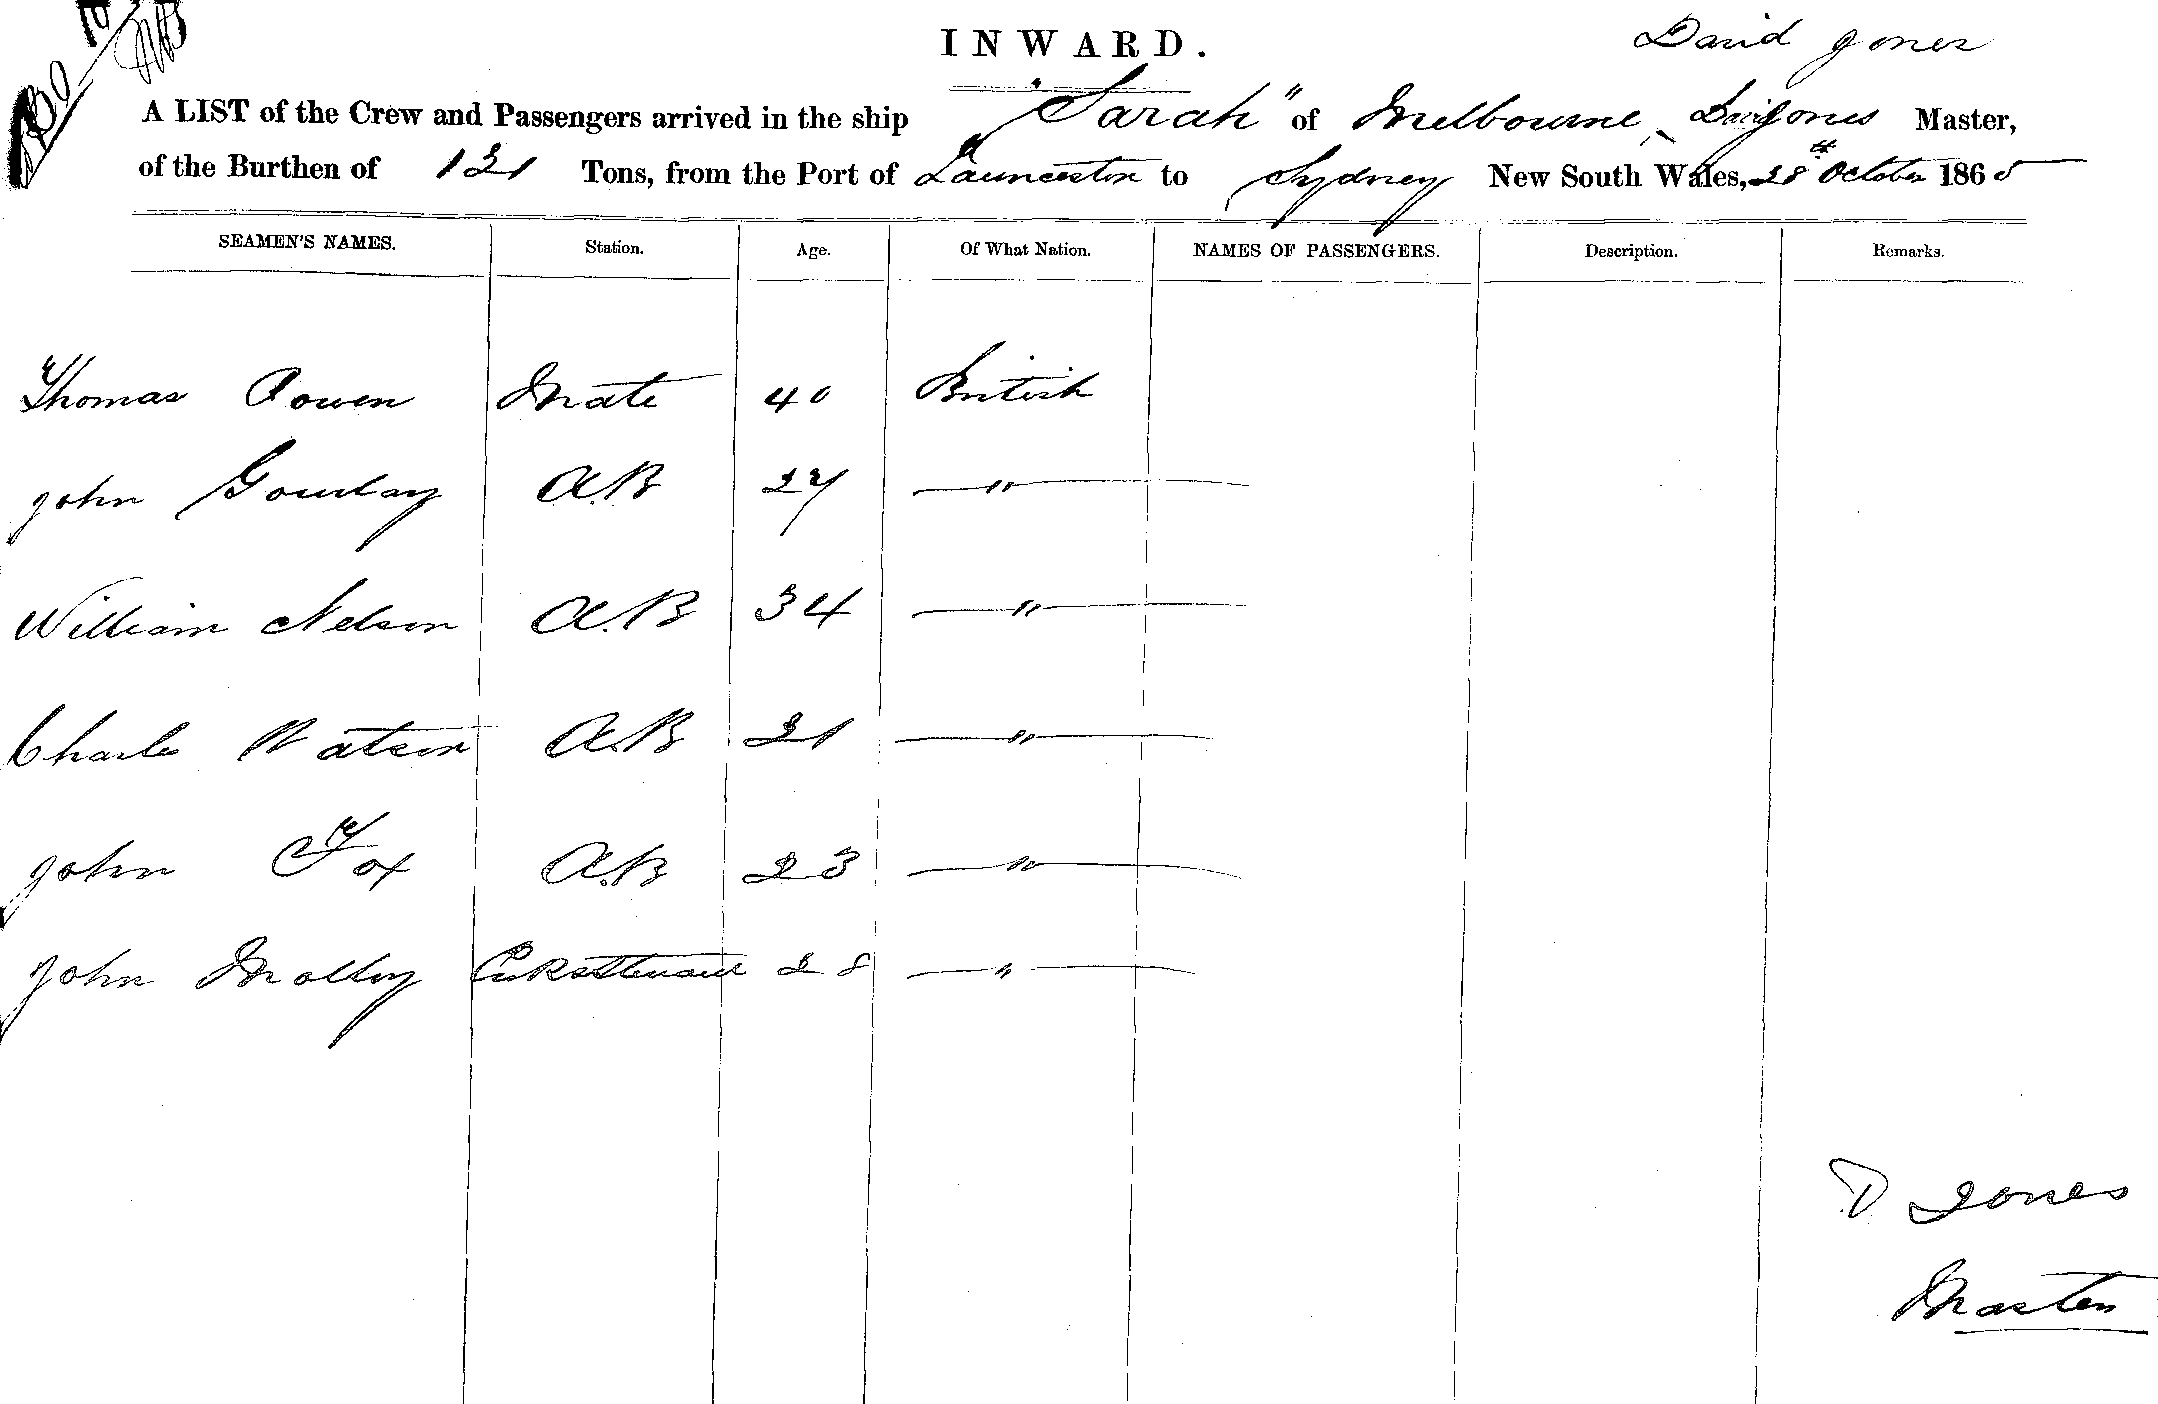 INWARD.
David Jones
A LIST of the Crew and Passengers arrived in the ship "Sarah" of Melbourne, David Jones Master,
of the Burthen of 121 Tons, from the Port of Launceston to Sydney New South Wales, 28th October 1865
SEAMEN'S NAMES. Station. Age. Of What Nation. NAMES OF PASSENGERS. Description. Remarks.
Thomas Owen Mate 40 British
John Gourlay A.B 27 — " —
William Nelson A.B 34 — " —
Charle Watson A.B 21 — " —
John Fox A.B 23 — " —
John Molloy Cook & Steward 28 — " —
D Jones
Master